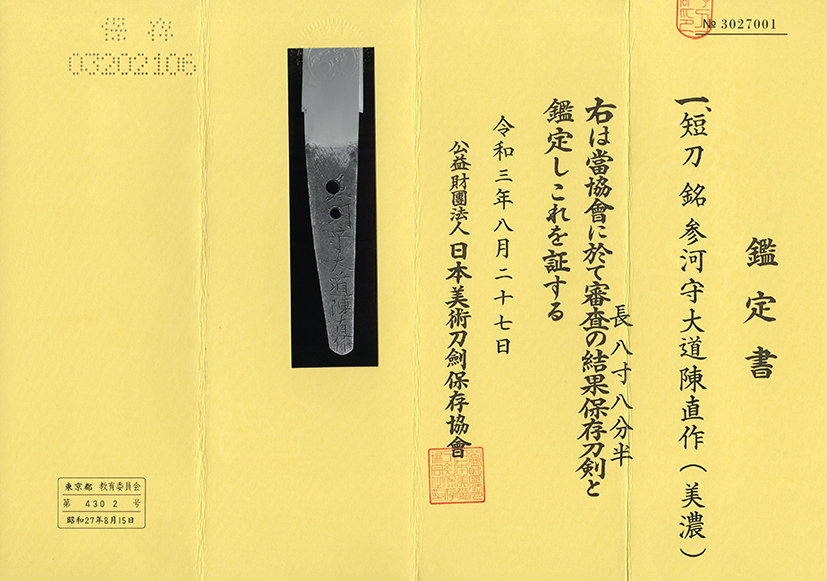 № 3027001
鑑定書
一、短刀 銘 参河守大道陳直作(美濃)
長八寸八分半
右は當協會に於て審査の結果保存刀剣と
鑑定しこれを証する
令和三年八月二十七日
公益財團法人 日本美術刀劍保存協會
河守大道陳直作
保存
03202106
東京都 教育委員会
第 4302 号
昭和27年8月15日